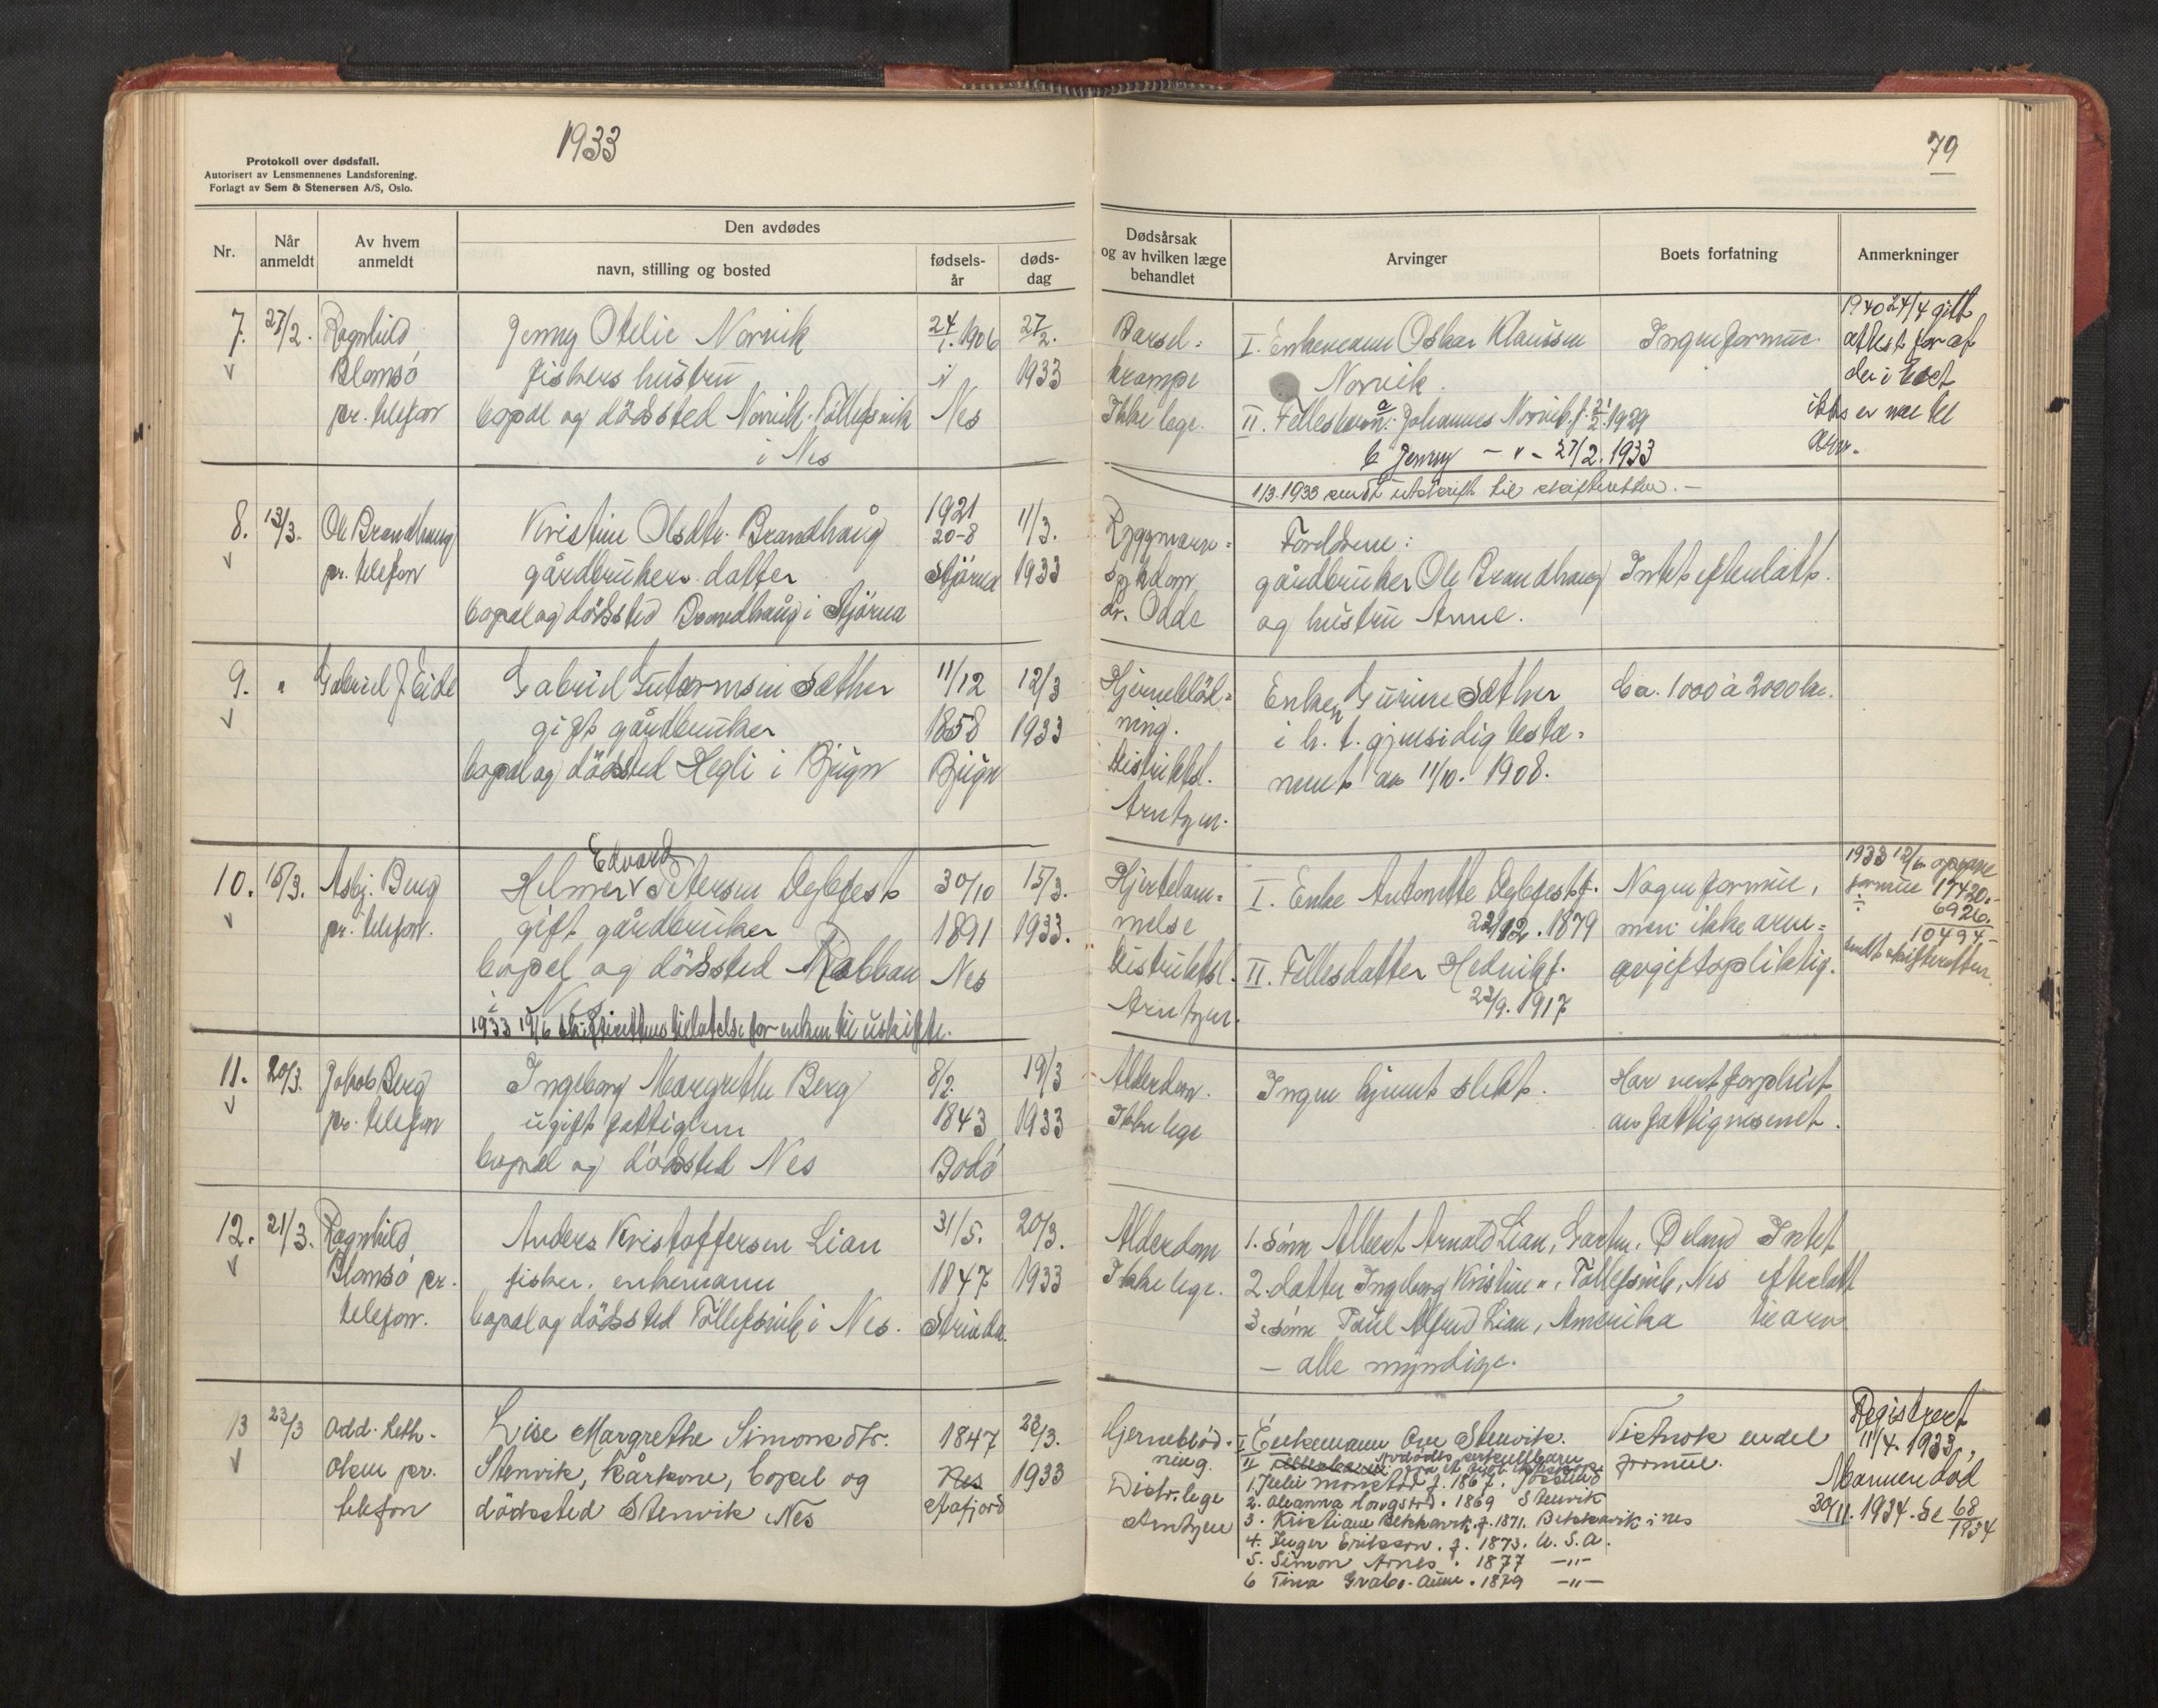 1933
79
Protokoll over dødsfall.
Autorisert av Lensmennenes Landsforening.
Forlagt av Sem & Stenersen A/S, Oslo.
Nr.
Når anmeldt
Av hvem anmeldt
Den avdødes
navn, stilling og bosted
fødsels-år
døds-dag
Dødsårsak og av hvilken læge behandlet
Arvinger
Boets forfatning
Anmerkninger
7. 27/2. Ragnhild Jenny Otelie Norvik 24/1. 1906 27/2.
Blomsö fiskers hustru i 1933
pr. telefon bopel og dödssted Norvik, Töllefsvik Nes
i Nes
Barsel- I. Enkemann Oskar Klausen Ingen formue. 1940 24/4 gitt
krampe Norvik. attest for at
Ikke lege. II. Fellesbarn: a Johannes Norvik f. 1929
b Jenny - " - 27/2. 1933
1/3. 1933 sendt utskrift til skifteretten. -
8. 13/3. Ole Brandhaug Kristine Olsdtr. Brandhaug 1921 11/3.
pr. telefon gårdbrukers datter 20-8 1933
bopel og dödssted Brandhaug i Stjörna Stjörna
Ryggmarv- Foreldrene:
sykdom gårdbruker Ole Brandhaug Intet efterlatt.
dr. Odde og hustru Anne.
9. " Gabriel J. Eide Gabriel Gutormsen Sæther 11/12 12/3
gift gårdbruker 1858 1933
bopel og dödssted Hegli i Bjugn Bjugn
Hjerneblöd- Enken Gurine Sæther Ca. 1000 à 2000 kr.
ning. i h. t. gjensidig testa-
Distriktsl. ment av 11/10. 1908.
Arntzen.
10. 15/3. Asbj. Berg Helmer Edvard Petersen Deglefest 30/10 15/3.
pr. telefon. gift gårdbruker 1891 1933.
bopel og dödssted Rabben Nes
i Nes
1933 19/6 skifterettens tillatelse for enken til uskifte.
Hjertelam- I. Enke Antonette Deglefest f. Nogen formue, 1933 12/6 opgave
melse 22/12. 1879 men ikke arve- formue 17420.-
Distriktsl. II. Fellesdatter Hedvik f. avgiftspliktig. ÷ 6926.
Arntzen. 23/9. 1917 10494.-
sendt skifteretten.
11. 20/3. Jakob Berg Ingeborg Margrethe Berg 8/2. 19/3
pr. telefon ugift fattiglem 1843 1933
bopel og dödssted Nes Bodö
Alderdom. Ingen kjent slekt. Har vert forpleiet
Ikke lege av fattigvesenet.
12. 21/3. Ragnhild Anders Kristoffersen Lian 31/5. 20/3.
Blomsö pr. fisker, enkemann 1847 1933
telefon. bopel og dödssted Töllefsvik i Nes. Strinda.
Alderdom 1. sönn Albert Arnold Lian, Garten, Ørland Intet
Ikke lege. 2. datter Ingeborg Kristine ", Töllefsvik, Nes efterlatt
3. sönn Paul Alfred Lian, Amerika til arv
- alle myndige.
13 23/3 Odd. Leth- Lise Margrethe Simonsdtr. 1847 23/3.
oken pr. Stenvik, kårkone, bopel og Nes 1933
telefon dödssted Stenvik Nes Åfjord
Hjerneblöd- I Enkemann Ove Stenvik. Vistnok endel Registrert
ning. II Avdödes særkullbarn formue. 11/4. 1933,
Distr.lege 1. Julie Monstad f. 1867. Mannen död
Arntzen 2. Oleanna Hongstad. 1869 Stenvik 30/11. 1934. Se 68/1934
3. Kristiane Bekkavik f. 1871. Bekkavik i Nes
4. Inger Erikson. f. 1873. U. S. A.
5. Simon Arnes. 1877 -"-
6 Tina Grabo-Aune. 1879 -"-